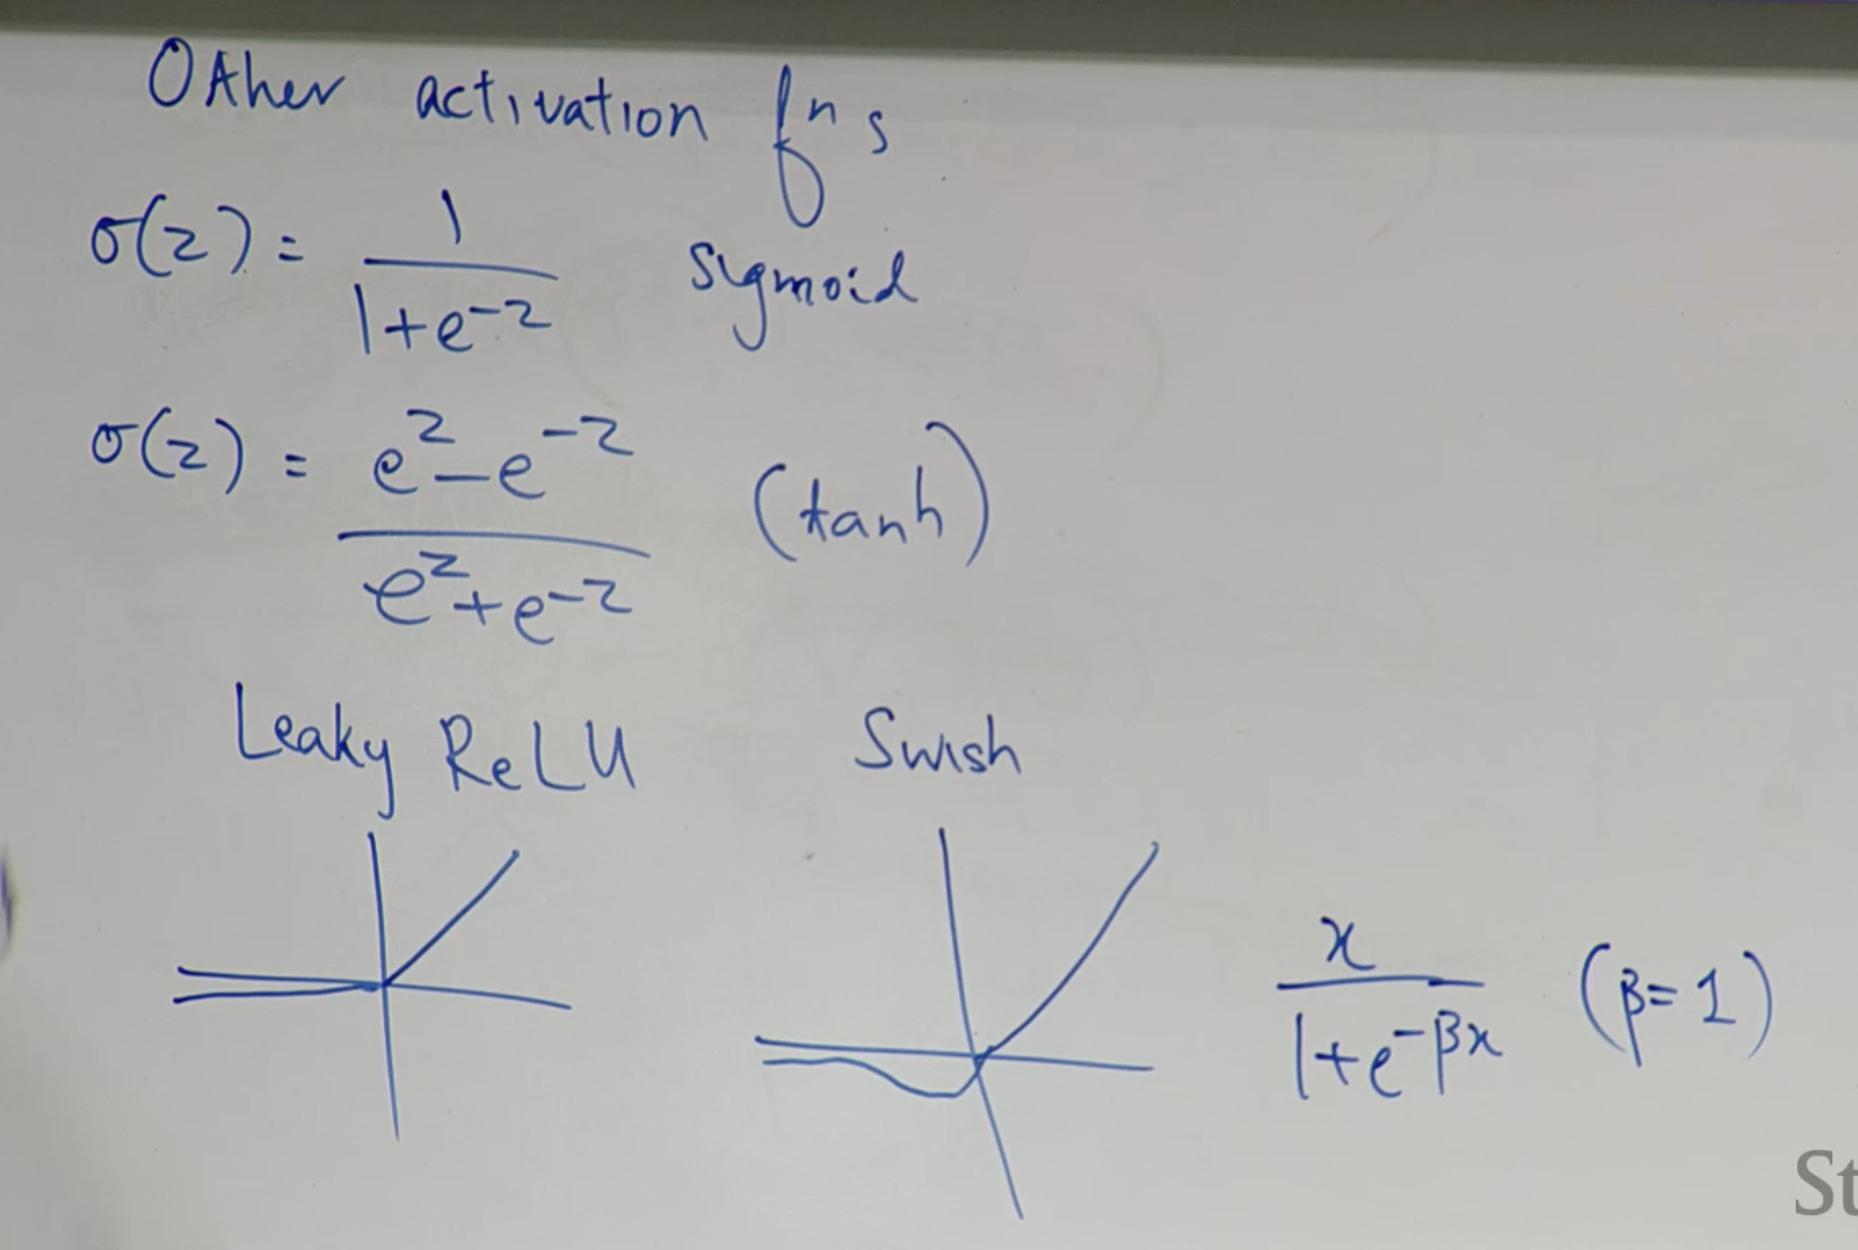 Other activation fⁿs
σ(z) = 1/(1+e^-z) sigmoid
σ(z) = (e^z-e^-z)/(e^z+e^-z) (tanh)
Leaky ReLU Swish
x/(1+e^-βx) (β=1)
St